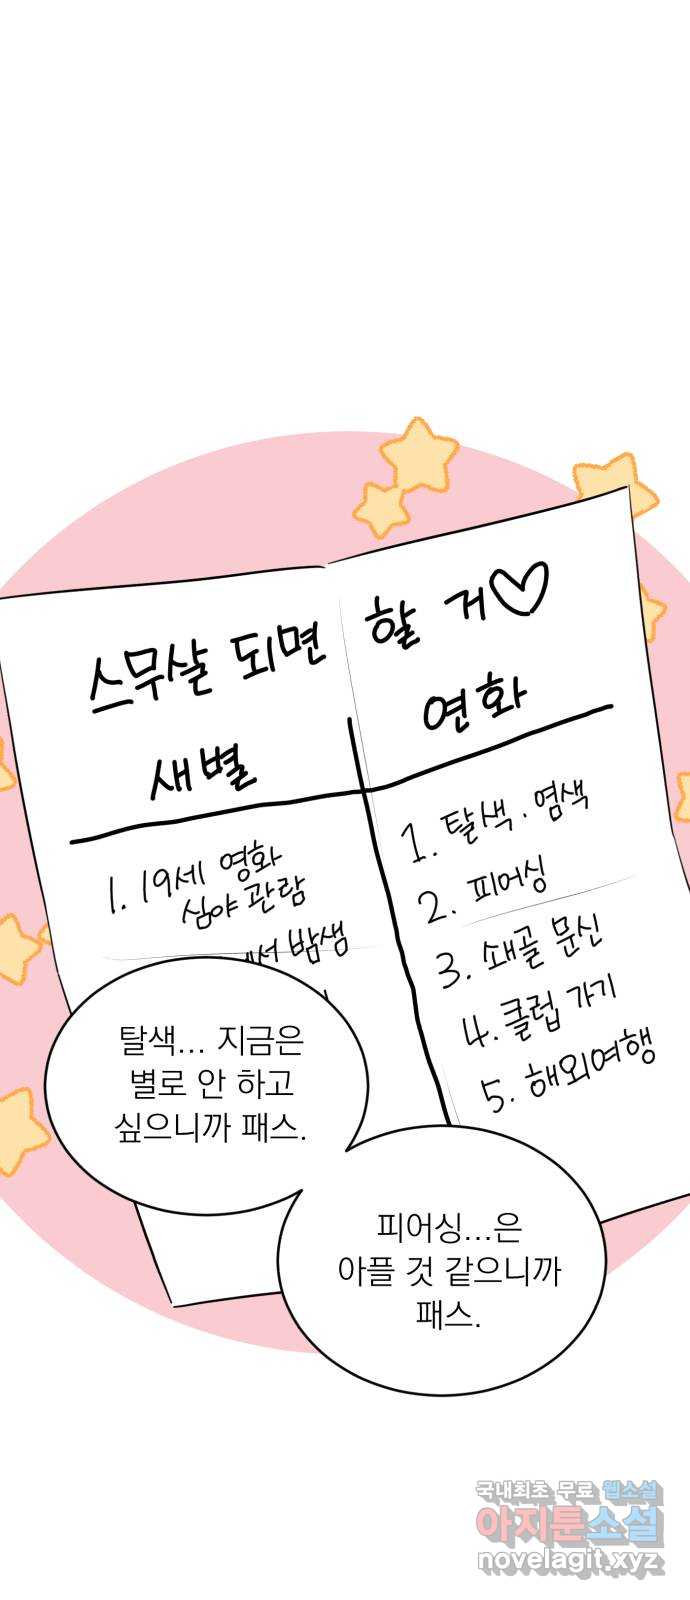 스무살 되면 할 거♡
새별
연화
1. 19세 영화
심야 관람
밤샘
1. 탈색·염색
2. 피어싱
3. 쇄골 문신
4. 클럽 가기
5. 해외여행
탈색... 지금은
별로 안 하고
싶으니까 패스.
피어싱...은
아플 것 같으니까
패스.
국내최초 무료 웹소설
아지툰소설
novelagit.xyz